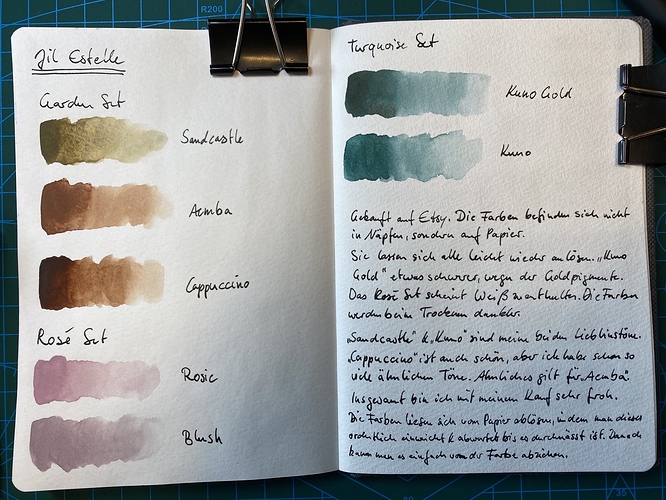 Jil Estelle
Garden Set
Sandcastle
Aemba
Cappuccino
Rosé Set
Rosie
Blush
Turquoise Set
Kuno Gold
Kuno
Gekauft auf Etsy. Die Farben befinden sich nicht
in Näpfen, sondern auf Papier.
Sie lassen sich alle leicht wieder anlösen. „Kuno
Gold" etwas schwerer, wegen der Goldpigmente.
Das Rosé Set scheint Weiß zu enthalten. Die Farben
werden beim Trocknen dunkler.
„Sandcastle" & „Kuno" sind meine beiden Lieblinstöne.
„Cappuccino" ist auch schön, aber ich habe schon so
viele ähnlichen Töne. Ähnliches gilt für „Aemba".
Insgesamt bin ich mit meinem Kauf sehr froh.
Die Farben liesen sich vom Papier ablösen, indem man dieses
ordentlich einweicht & abwartet bis es durchnässt ist. Danach
kann man es einfach von der Farbe abziehen.
R200
35